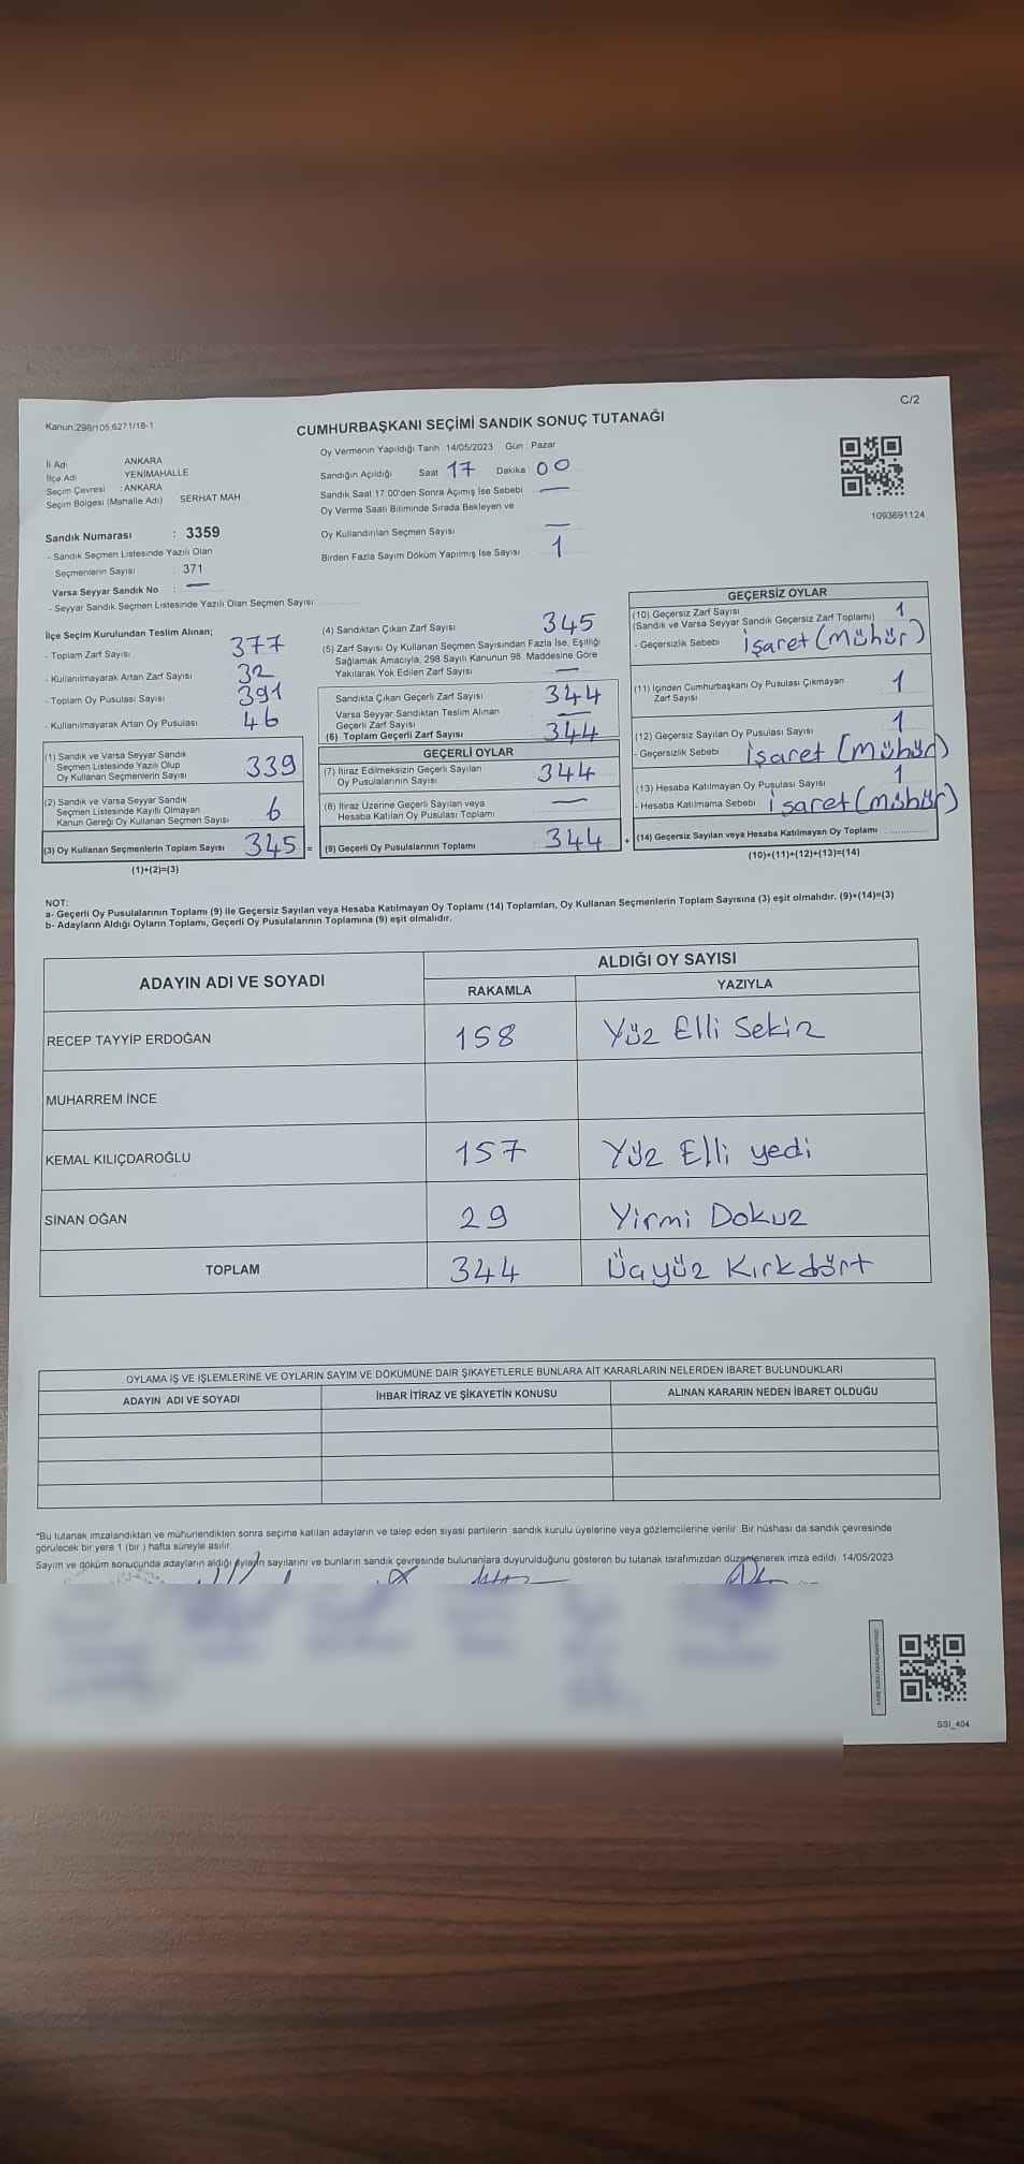 Kanun:298/105,6271/18-1
C/2
CUMHURBAŞKANI SEÇİMİ SANDIK SONUÇ TUTANAĞI
İl Adı ANKARA
İlçe Adı YENİMAHALLE
Seçim Çevresi : ANKARA
Seçim Bölgesi (Mahalle Adı) SERHAT MAH
Oy Vermenin Yapıldığı Tarih 14/05/2023 Gün : Pazar
Sandığın Açıldığı Saat 17 Dakika 00
Sandık Saat 17:00'den Sonra Açılmış İse Sebebi —
Oy Verme Saati Bitiminde Sırada Bekleyen ve
Oy Kullandırılan Seçmen Sayısı —
Birden Fazla Sayım Döküm Yapılmış İse Sayısı 1
1093691124
Sandık Numarası : 3359
- Sandık Seçmen Listesinde Yazılı Olan
Seçmenlerin Sayısı : 371
Varsa Seyyar Sandık No : —
- Seyyar Sandık Seçmen Listesinde Yazılı Olan Seçmen Sayısı
İlçe Seçim Kurulundan Teslim Alınan;
- Toplam Zarf Sayısı 377
- Kullanılmayarak Artan Zarf Sayısı 32
- Toplam Oy Pusulası Sayısı 391
- Kullanılmayarak Artan Oy Pusulası 46
(1) Sandık ve Varsa Seyyar Sandık
Seçmen Listesinde Yazılı Olup
Oy Kullanan Seçmenlerin Sayısı 339
(2) Sandık ve Varsa Seyyar Sandık
Seçmen Listesinde Kayıtlı Olmayan
Kanun Gereği Oy Kullanan Seçmen Sayısı 6
(3) Oy Kullanan Seçmenlerin Toplam Sayısı 345 =
(1)+(2)=(3)
(4) Sandıktan Çıkan Zarf Sayısı 345
(5) Zarf Sayısı Oy Kullanan Seçmen Sayısından Fazla İse, Eşitliği
Sağlamak Amacıyla, 298 Sayılı Kanunun 98. Maddesine Göre
Yakılarak Yok Edilen Zarf Sayısı —
Sandıkta Çıkan Geçerli Zarf Sayısı 344
Varsa Seyyar Sandıktan Teslim Alınan
Geçerli Zarf Sayısı —
(6) Toplam Geçerli Zarf Sayısı 344
GEÇERLİ OYLAR
(7) İtiraz Edilmeksizin Geçerli Sayılan
Oy Pusulalarının Sayısı 344
(8) İtiraz Üzerine Geçerli Sayılan veya
Hesaba Katılan Oy Pusulası Toplamı —
(9) Geçerli Oy Pusulalarının Toplamı 344 +
GEÇERSİZ OYLAR
(10) Geçersiz Zarf Sayısı 1
(Sandık ve Varsa Seyyar Sandık Geçersiz Zarf Toplamı)
- Geçersizlik Sebebi işaret (mühür)
(11) İçinden Cumhurbaşkanı Oy Pusulası Çıkmayan
Zarf Sayısı 1
(12) Geçersiz Sayılan Oy Pusulası Sayısı 1
- Geçersizlik Sebebi işaret (mühür)
(13) Hesaba Katılmayan Oy Pusulası Sayısı 1
- Hesaba Katılmama Sebebi işaret (mühür)
(14) Geçersiz Sayılan veya Hesaba Katılmayan Oy Toplamı
(10)+(11)+(12)+(13)=(14)
NOT:
a- Geçerli Oy Pusulalarının Toplamı (9) ile Geçersiz Sayılan veya Hesaba Katılmayan Oy Toplamı (14) Toplamları, Oy Kullanan Seçmenlerin Toplam Sayısına (3) eşit olmalıdır. (9)+(14)=(3)
b- Adayların Aldığı Oyların Toplamı, Geçerli Oy Pusulalarının Toplamına (9) eşit olmalıdır.
ADAYIN ADI VE SOYADI
ALDIĞI OY SAYISI
RAKAMLA YAZIYLA
RECEP TAYYİP ERDOĞAN 158 Yüz Elli Sekiz
MUHARREM İNCE
KEMAL KILIÇDAROĞLU 157 Yüz Elli yedi
SİNAN OĞAN 29 Yirmi Dokuz
TOPLAM 344 Üçyüz Kırkdört
OYLAMA İŞ VE İŞLEMLERİNE VE OYLARIN SAYIM VE DÖKÜMÜNE DAİR ŞİKAYETLERLE BUNLARA AİT KARARLARIN NELERDEN İBARET BULUNDUKLARI
ADAYIN ADI VE SOYADI İHBAR İTİRAZ VE ŞİKAYETİN KONUSU ALINAN KARARIN NEDEN İBARET OLDUĞU
*Bu tutanak imzalandıktan ve mühürlendikten sonra seçime katılan adayların ve talep eden siyasi partilerin sandık kurulu üyelerine veya gözlemcilerine verilir. Bir nüshası da sandık çevresinde
görülecek bir yere 1 (bir) hafta süreyle asılır.
Sayım ve döküm sonucunda adayların aldığı oyların sayılarını ve bunların sandık çevresinde bulunanlara duyurulduğunu gösteren bu tutanak tarafımızdan düzenlenerek imza edildi. 14/05/2023
SSI_404